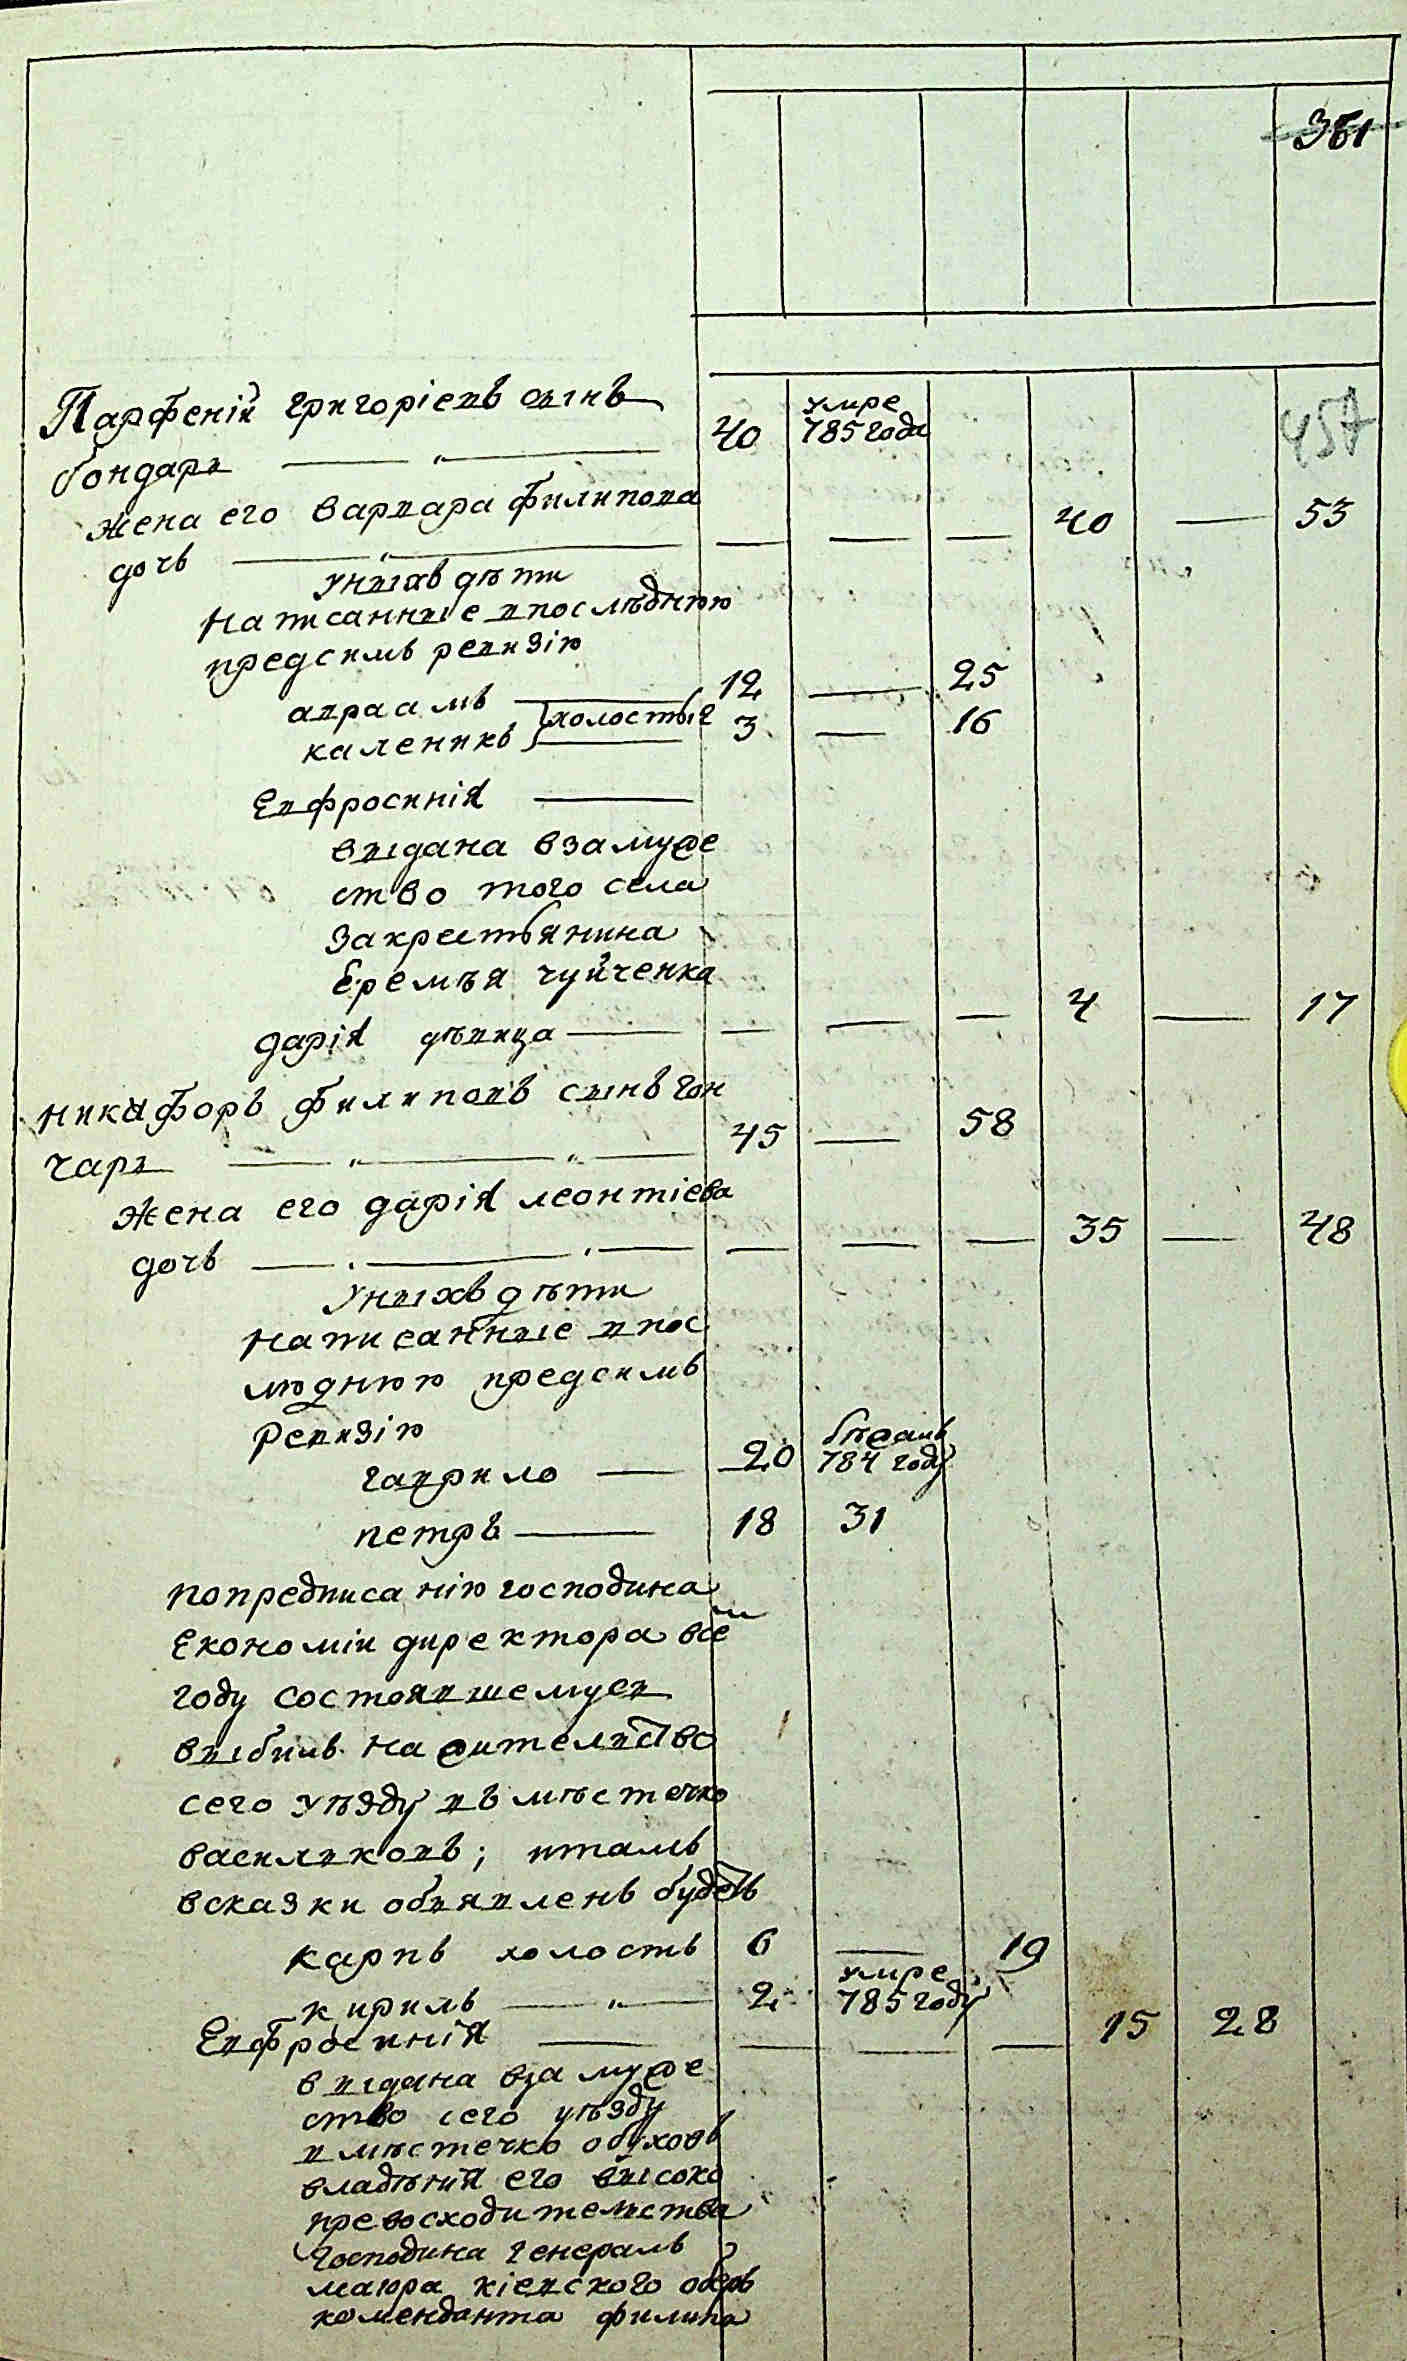 351
457
Парфеній григоріевъ сынъ
умре
40 785 года
бондарь
жена его варвара филипова
40 53
дочь
унихъ дѣти
написанные впослѣднюю
предсимъ ревизію
авраамъ 12 25
каленикъ } холостые 3 16
Евфросинія
выдана взамуже
ство того села
закрестьянина
Еремѣя чуйченка
дарія дѣвица 4 17
никифоръ филиповъ сынъ гон
чарь 45 58
жена его дарія леонтіева
дочь 35 48
унихъ дѣти
написанные впос
лѣднюю предсимъ
ревизію
гаврило 20 бѣжалъ 784 году
петръ 18 31
попредписанію господина
Економіи директора всем
году состоявшемуся
выбылъ нажителство
сего уѣзду въ мѣстечко
василковъ; итамъ
всказки объявленъ будетъ
карпъ холостъ 6 19
кирилъ 2 умре 785 году
Евфросинія 15 28
выдана взамуже
ство сего уѣзду
вмѣстечко обуховъ
владѣнія его высоко
превосходителства
господина генералъ
маіора кіевского оберъ
коменданта филипа